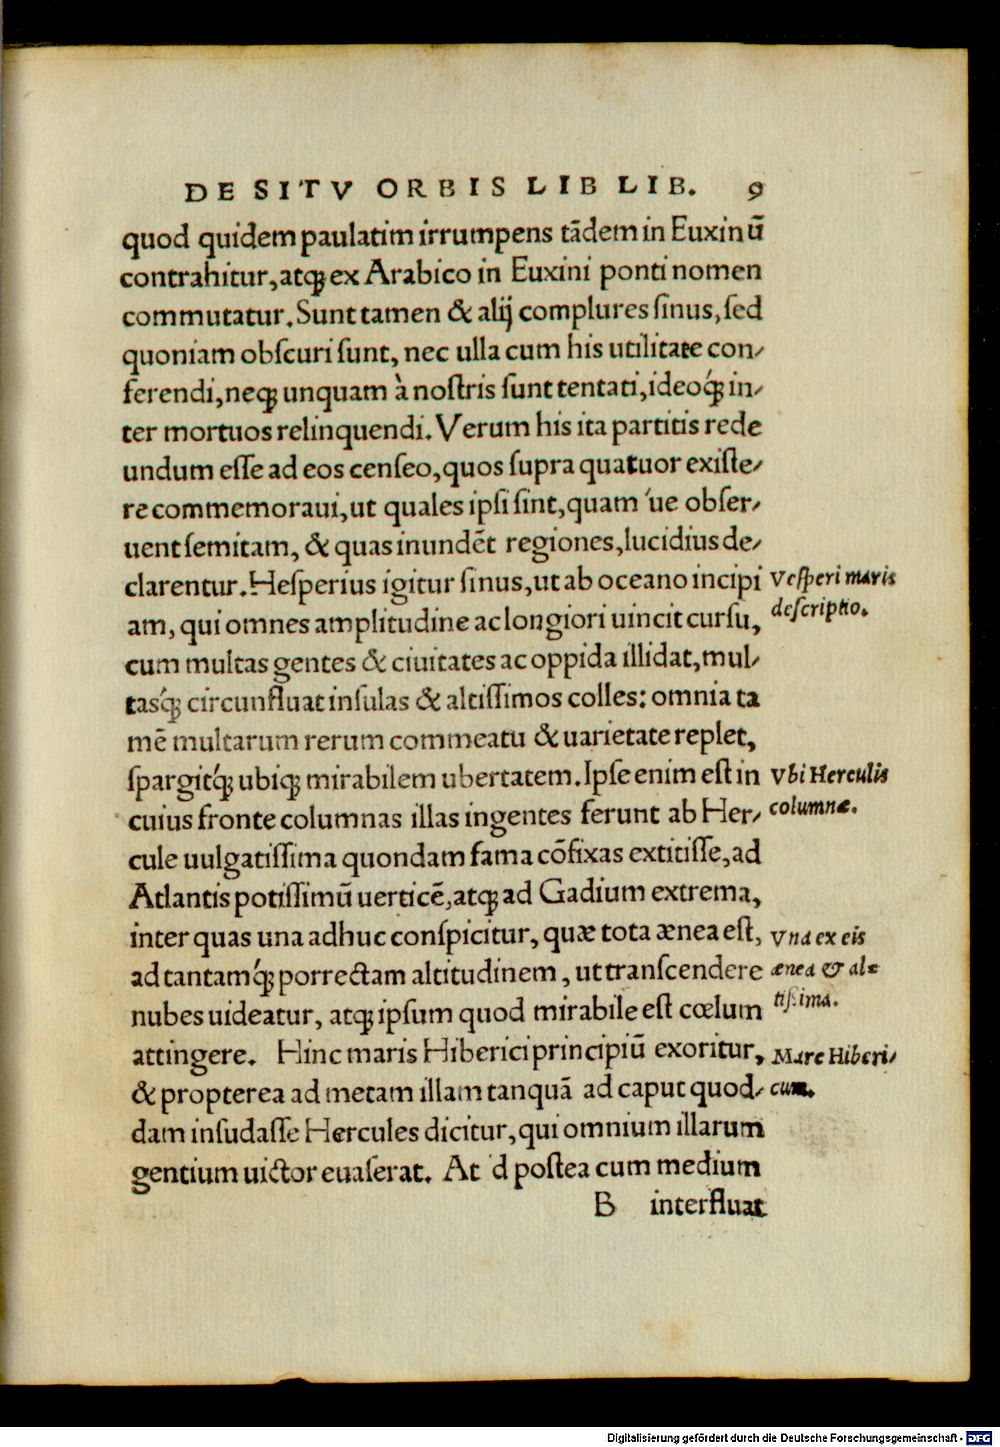 DE SITV ORBIS LIB LIB. 9
quod quidem paulatim irrumpens tādem in Euxinū
contrahitur, atqꝫ ex Arabico in Euxini ponti nomen
commutatur. Sunt tamen & alij complures ſinus, ſed
quoniam obſcuri ſunt, nec ulla cum his utilitate con-
ferendi, neqꝫ unquam à noſtris ſunt tentati, ideoqꝫ́ in-
ter mortuos relinquendi. Verum his ita partitis rede
undum eſſe ad eos cenſeo, quos ſupra quatuor exiſte-
re commemoraui, ut quales ipſi ſint, quam ue obſer-
uent ſemitam, & quas inundēt regiones, lucidius de-
clarentur. Heſperius igitur ſinus, ut ab oceano incipi
Veſperi maris
am, qui omnes amplitudine ac longiori uincit curſu,
deſcriptio.
cum multas gentes & ciuitates ac oppida illidat, mul-
tasqꝫ́ circunfluat inſulas & altiſſimos colles: omnia ta
mē multarum rerum commeatu & uarietate replet,
ſpargitqꝫ́ ubiqꝫ mirabilem ubertatem. Ipſe enim eſt in
Vbi Herculis
cuius fronte columnas illas ingentes ferunt ab Her-
columnæ.
cule uulgatiſſima quondam fama cōfixas extitiſſe, ad
Atlantis potiſſimū uerticē, atqꝫ ad Gadium extrema,
inter quas una adhuc conſpicitur, quæ tota ænea eſt,
Vna ex eis
ad tantamqꝫ́ porrectam altitudinem, ut tranſcendere
ænea & al=
nubes uideatur, atqꝫ ipſum quod mirabile eſt cœlum
tiſſima.
attingere. Hinc maris Hiberici principiū exoritur,
Mare Hiberi-
& propterea ad metam illam tanquā ad caput quod-
cum.
dam inſudaſſe Hercules dicitur, qui omnium illarum
gentium uictor euaſerat. At d poſtea cum medium
B interfluat
Digitalisierung gefördert durch die Deutsche Forschungsgemeinschaft - DFG